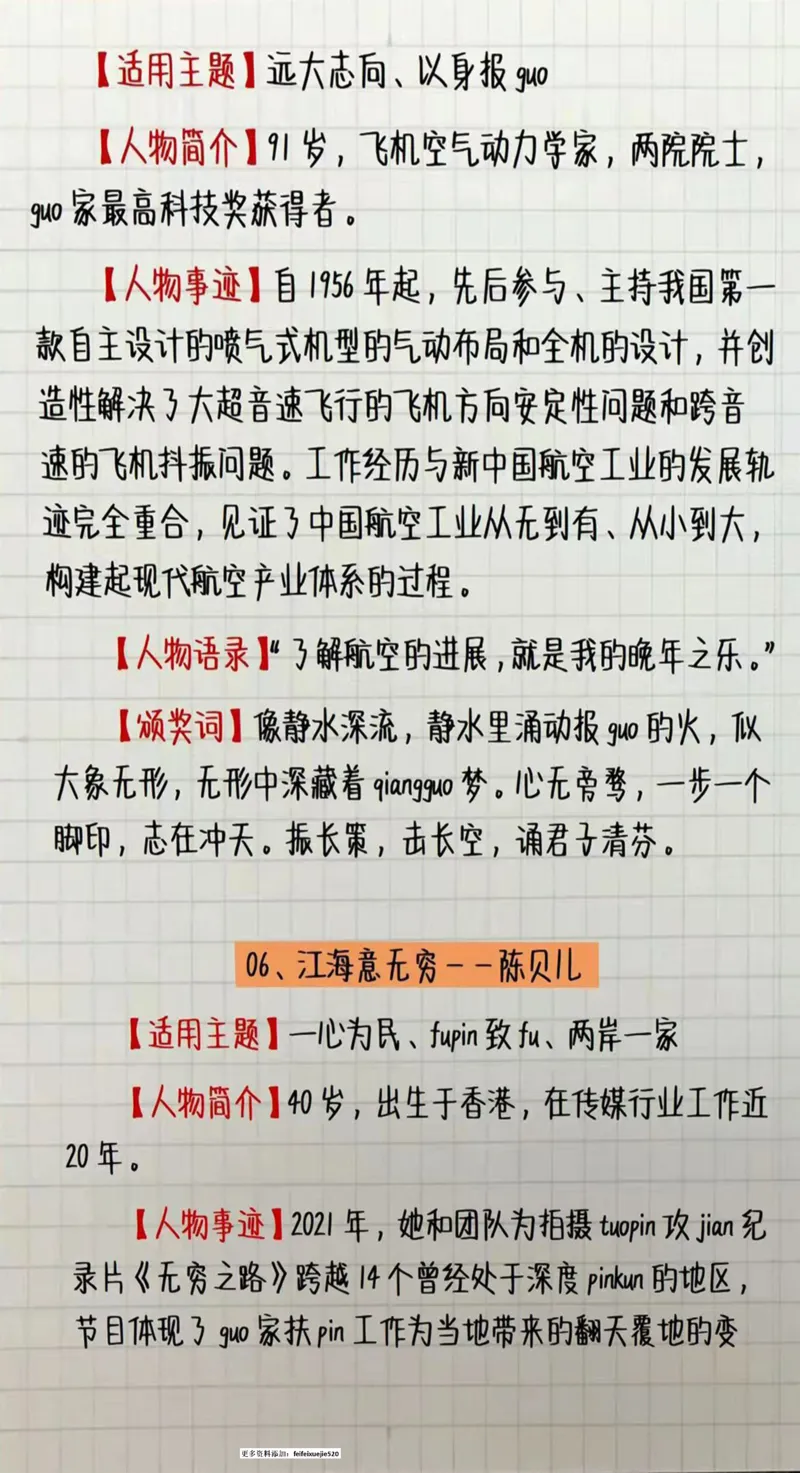 【适用主题】远大志向、以身报guo
【人物简介】91岁，飞机空气动力学家，两院院士，
guo家最高科技奖获得者。
【人物事迹】自1956年起，先后参与、主持我国第一
款自主设计的喷气式机型的气动布局和全机的设计，并创
造性解决了大超音速飞行的飞机方向安定性问题和跨音
速的飞机抖振问题。工作经历与新中国航空工业的发展轨
迹完全重合，见证了中国航空工业从无到有、从小到大，
构建起现代航空产业体系的过程。
【人物语录】“了解航空的进展，就是我的晚年之乐。”
【颁奖词】像静水深流，静水里涌动报guo的火，似
大象无形，无形中深藏着qiangguo梦。心无旁骛，一步一个
脚印，志在冲天。振长策，击长空，诵君子清芬。
06、江海意无穷——陈贝儿
【适用主题】一心为民、fupin致fu、两岸一家
【人物简介】40岁，出生于香港，在传媒行业工作近
20年。
【人物事迹】2021年，她和团队为拍摄tuopin攻jian纪
录片《无穷之路》跨越14个曾经处于深度pinkun的地区，
节目体现了guo家扶pin工作为当地带来的翻天覆地的变
更多资料添加：feifeixuejie520